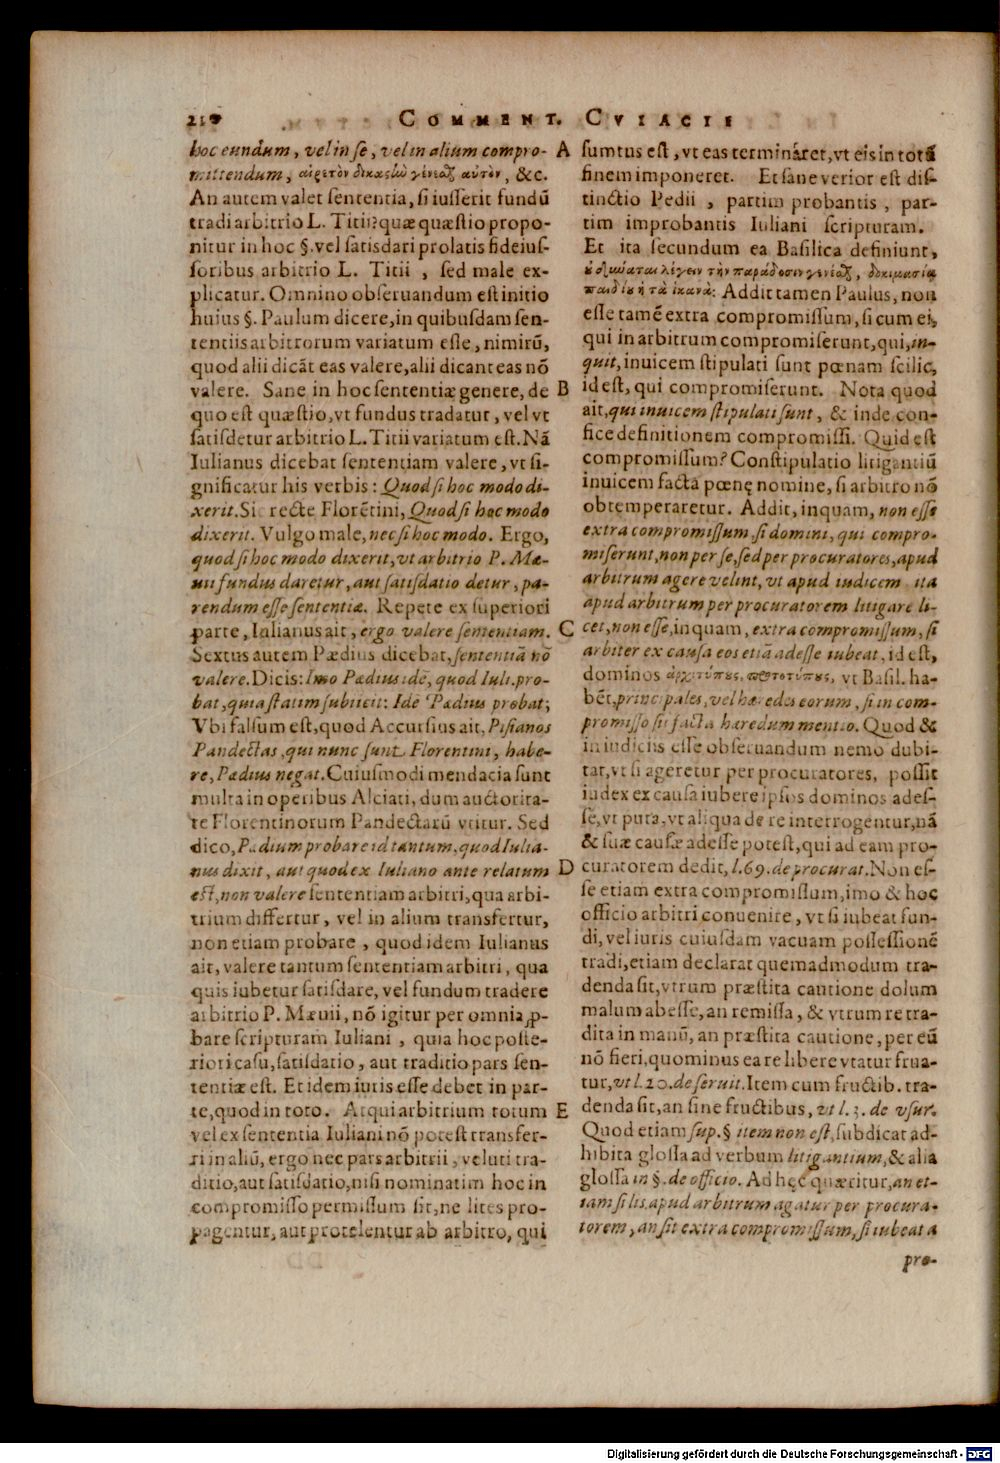 COMMENT. CVIACII
hoc eundum, vel in se, vel in alium compro-
mittendum, αἱρετὸν δικαστὼ γενέσθαι αὐτὸν, &c.
An autem valet sententia, si iusserit fundū
tradi arbitrio L. Titii? quæ quæstio propo-
nitur in hoc §. vel satisdari prolatis fideius-
soribus arbitrio L. Titii, sed male ex-
plicatur. Omnino obseruandum est initio
huius §. Paulum dicere, in quibusdam sen-
tentiis arbitrorum variatum esse, nimirū,
quod alii dicāt eas valere, alii dicant eas nō
valere. Sane in hoc sententiæ genere, de
quo est quæstio, vt fundus tradatur, vel vt
satisdetur arbitrio L. Titii variatum est. Nā
Iulianus dicebat sententiam valere, vt si-
gnificatur his verbis: Quod si hoc modo di-
xerit. Sic recte Florētini, Quod si hoc modo
dixerit. Vulgo male, nec si hoc modo. Ergo,
quod si hoc modo dixerit, vt arbitrio P. Mæ-
uii fundus daretur, aut satisdatio detur, pa-
rendum esse sententiæ. Repete ex superiori
parte, Iulianus ait, ergo valere sententiam.
Sextus autem Pædius dicebat, sententiā nō
valere. Dicis: Imo Pædius idē, quod Iuli. pro-
bat, quia statim subiicit: Idē Pædius probat;
Vbi falsum est, quod Accursius ait, Pisanos
Pandectas, qui nunc sunt Florentini, habe-
re, Pædius negat. Cuiusmodi mendacia sunt
multa in operibus Alciati, dum auctorita-
te Florentinorum Pandectarū vtitur. Sed
dico, Pædium probare id tantum, quod Iulia-
nus dixit, aut quod ex Iuliano ante relatum
est, non valere sententiam arbitri, qua arbi-
trium differtur, vel in alium transfertur,
non etiam probare, quod idem Iulianus
ait, valere tantum sententiam arbitri, qua
quis iubetur satisdare, vel fundum tradere
arbitrio P. Mæuii, nō igitur per omnia ꝓ-
bare scripturam Iuliani, quia hoc poste-
riori casu, satisdatio, aut traditio pars sen-
tentiæ est. Et idem iuris esse debet in par-
te, quod in toto. Atqui arbitrium totum
vel ex sententia Iuliani nō potest transfer-
ri in aliū, ergo nec pars arbitrii, veluti tra-
ditio, aut satisdatio, nisi nominatim hoc in
compromisso permissum sit, ne lites pro-
pagentur, aut protelentur ab arbitro, qui
A
B
C
D
E
sumtus est, vt eas termināret, vt eis in totā
finem imponeret. Et sane verior est dis-
tinctio Pedii, partim probantis, par-
tim improbantis Iuliani scripturam.
Et ita secundum ea Basilica definiunt,
λέγειν τὴν παράδοσιν γενέσθαι,
ἢ τὰ ἱκανὰ: Addit tamen Paulus, non
esse tamē extra compromissum, si cum ei,
qui in arbitrum compromiserunt, qui, in-
quit, inuicem stipulati sunt pœnam scilic,
id est, qui compromiserunt. Nota quod
ait, qui inuicem stipulati sunt, & inde con-
fice definitionem compromissi. Quid est
compromissum? Constipulatio litigantiū
inuicem facta pœnę nomine, si arbitro nō
obtemperaretur. Addit, inquam, non esse
extra compromissum, si domini, qui compro-
miserunt, non per se, sed per procuratores, apud
arbitrum agere velint, vt apud iudicem ita
apud arbitrum per procuratorem litigare li-
cet, non esse, inquam, extra compromissum, si
arbiter ex causa eos etiā adesse iubeat, id est,
dominos ἀρχετύπους, πρωτοτύπους, vt Basil. ha-
bēt, principales, vel hæredes eorum, si in com-
promisso sit facta hæredum mentio. Quod &
in iudiciis esse obseruandum nemo dubi-
tat, vt si ageretur per procuratores, possit
iudex ex causa iubere ipsos dominos ades-
se, vt puta, vt aliqua de re interrogentur, nā
& suæ causæ adesse potest, qui ad eam pro-
curatorem dedit, l. 69. de procurat. Non es-
se etiam extra compromissum, imo & hoc
officio arbitri conuenire, vt si iubeat fun-
di, vel iuris cuiusdam vacuam possessionē
tradi, etiam declarat quemadmodum tra-
denda sit, vtrum præstita cautione dolum
malum abesse, an remissa, & vtrum re tra-
dita in manū, an præstita cautione, per eū
nō fieri, quominus ea re libere vtatur frua-
tur, vt l. 20. de seruit. Item cum fructib. tra-
denda sit, an sine fructibus, vt l. 3. de vsur.
Quod etiam sup. § item non est, subdicat ad-
hibita glossa ad verbum litigantium, & alia
glossa in §. de officio. Ad hęc quæritur, an et-
iam si lis apud arbitrum agatur per procura-
torem, an sit extra compromissum, si iubeat a
pro-
Digitalisierung gefördert durch die Deutsche Forschungsgemeinschaft - DFG